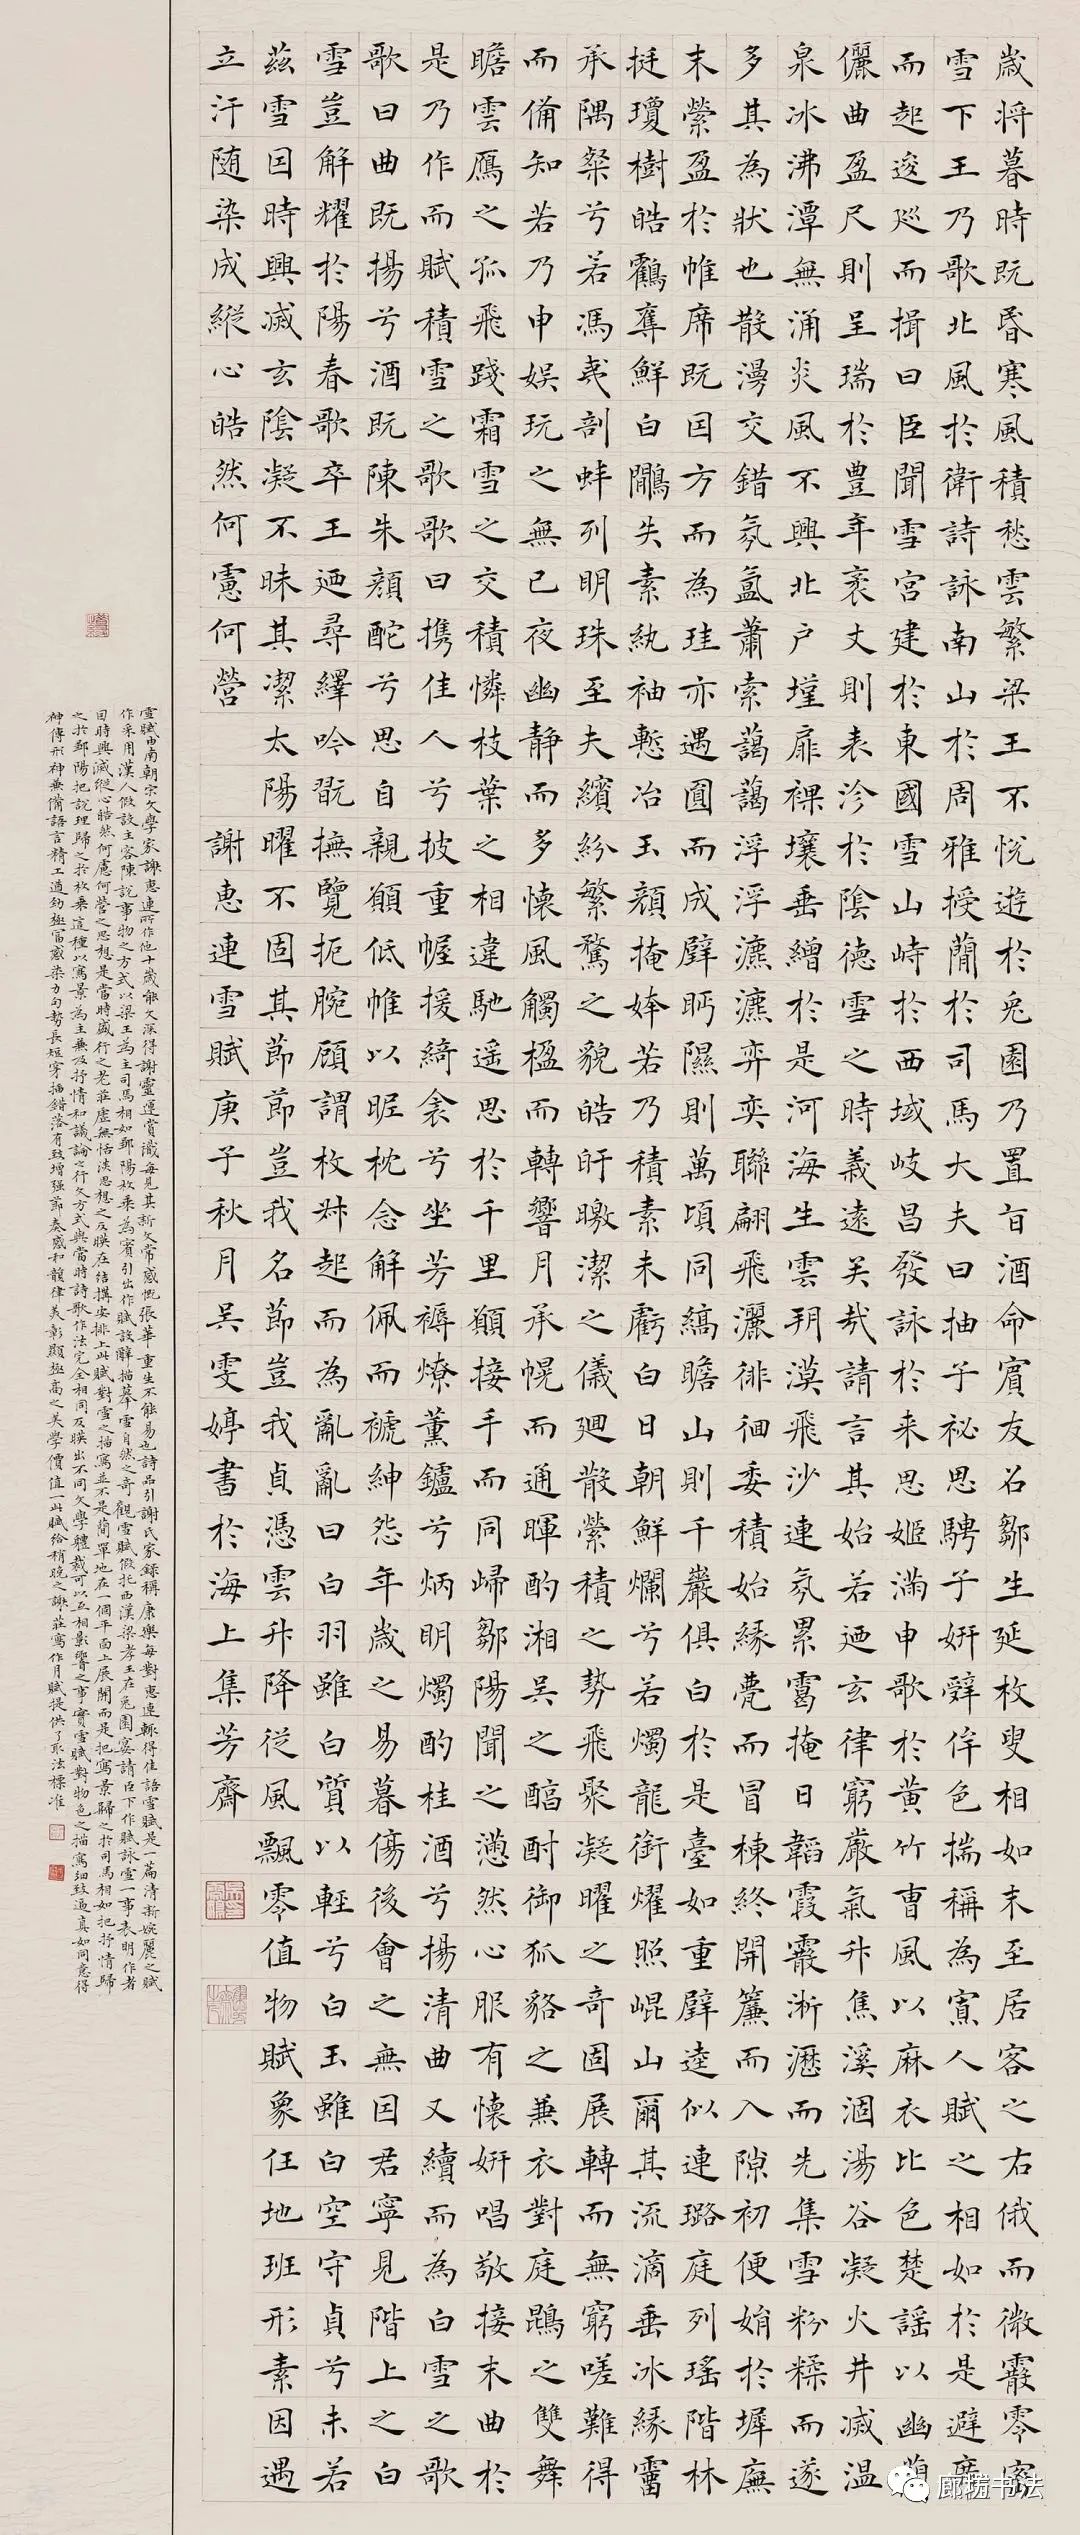 歲將暮時既昏寒風積愁雲繁梁王不悅遊於兔園乃置旨酒命賓友召鄒生延枚叟相如末至居客之右俄而微霰零密
雪下王乃歌北風於衛詩詠南山於周雅授簡於司馬大夫曰抽子祕思騁子妍辭侔色揣稱為賓人賦之相如於是避席
而起逡巡而揖曰臣聞雪宮建於東國雪山峙於西域岐昌發詠於来思姬滿申歌於黃竹曹風以麻衣比色楚謠以幽蘭
儷曲盈尺則呈瑞於豊年袤丈則表沴於陰德雪之時義遠矣哉請言其始若迺玄律窮嚴氣升焦溪涸湯谷凝火井滅温
泉冰沸潭無涌炎風不興北户墐扉裸壤垂繒於是河海生雲朔漠飛沙連氛累靄掩日韜霞霰淅瀝而先集雪粉糅而遂
多其為狀也散漫交錯氛氳蕭索藹藹浮浮瀌瀌弈弈聯翩飛灑徘徊委積始緣甍而冒棟終開簾而入隙初便娟於墀廡
末縈盈於帷席既因方而為珪亦遇圓而成璧眄隰則萬頃同縞瞻山則千巖俱白於是臺如重璧逵似連璐庭列瑤階林
挺瓊樹皓鶴奪鮮白鷴失素紈袖慙冶玉顏掩姱若乃積素未虧白日朝鮮爛兮若燭龍銜燿照崐山爾其流滴垂冰緣霤
承隅粲兮若馮夷剖蚌列明珠至夫繽紛繁騖之貌皓旰曒潔之儀廻散縈積之勢飛聚凝曜之奇固展轉而無窮嗟難得
而備知若乃申娱玩之無已夜幽静而多懷風觸楹而轉響月承幌而通暉酌湘吳之醽酎御狐貉之兼衣對庭鵾之雙舞
瞻雲鴈之孤飛踐霜雪之交積憐枝葉之相違馳遥思於千里願接手而同歸鄒陽聞之懣然心服有懷妍唱敬接末曲於
是乃作而賦積雪之歌歌曰攜佳人兮披重幄援綺衾兮坐芳褥燎薰鑪兮炳明燭酌桂酒兮揚清曲又續而為白雪之歌
歌曰曲既揚兮酒既陳朱顏酡兮思自親願低帷以昵枕念解佩而褫紳怨年歲之易暮傷後會之無因君寧見階上之白
雪豈解耀於陽春歌卒王迺尋繹吟翫撫覽扼腕顧謂枚叔起而為亂亂曰白羽雖白質以輕兮白玉雖白空守貞兮未若
茲雪因時興滅玄陰凝不昧其潔太陽曜不固其節節豈我名節豈我貞憑雲升降從風飄零值物賦象任地班形素因遇
立汙随染成縱心皓然何慮何營
謝惠連雪賦庚子秋月吳雯婷書於海上集芳齋
雪賦由南朝宋文學家謝惠連所作他十歲能文深得謝靈運賞識每見其新文常感慨張華重生不能易也詩品引謝氏家錄稱康樂每對惠連輒得佳語雪賦是一篇清新婉麗之賦
作采用漢人假設主客陳說事物之方式以梁王為主司馬相如鄒陽枚乘為賓引出作賦設辭描摹雪自然之奇觀雪賦假托西漢梁孝王在兔園宴請臣下作賦詠雪一事表明作者
因時興滅縱心皓然何慮何營之思想是當時盛行之老莊虛無恬淡思想之反映在結構安排上此賦對雪之描寫並不是簡單地在一個平面上展開而是把寫景歸之於司馬相如把抒情歸
之於鄒陽把說理歸之於枚乘這種以寫景為主兼及抒情和議論之行文方式與當時詩歌作法完全相同反映出不同文學體裁可以互相影響之事實雪賦對物色之描寫細致逼真如同意得
神傳形神兼備語言精工遒鈎極富感染力句勢長短穿插錯落有致增强節奏感和韻律美彰顯極高之美學價值一此賦給稍晚之謝莊寫作月賦提供了取法標准
廊橋书法